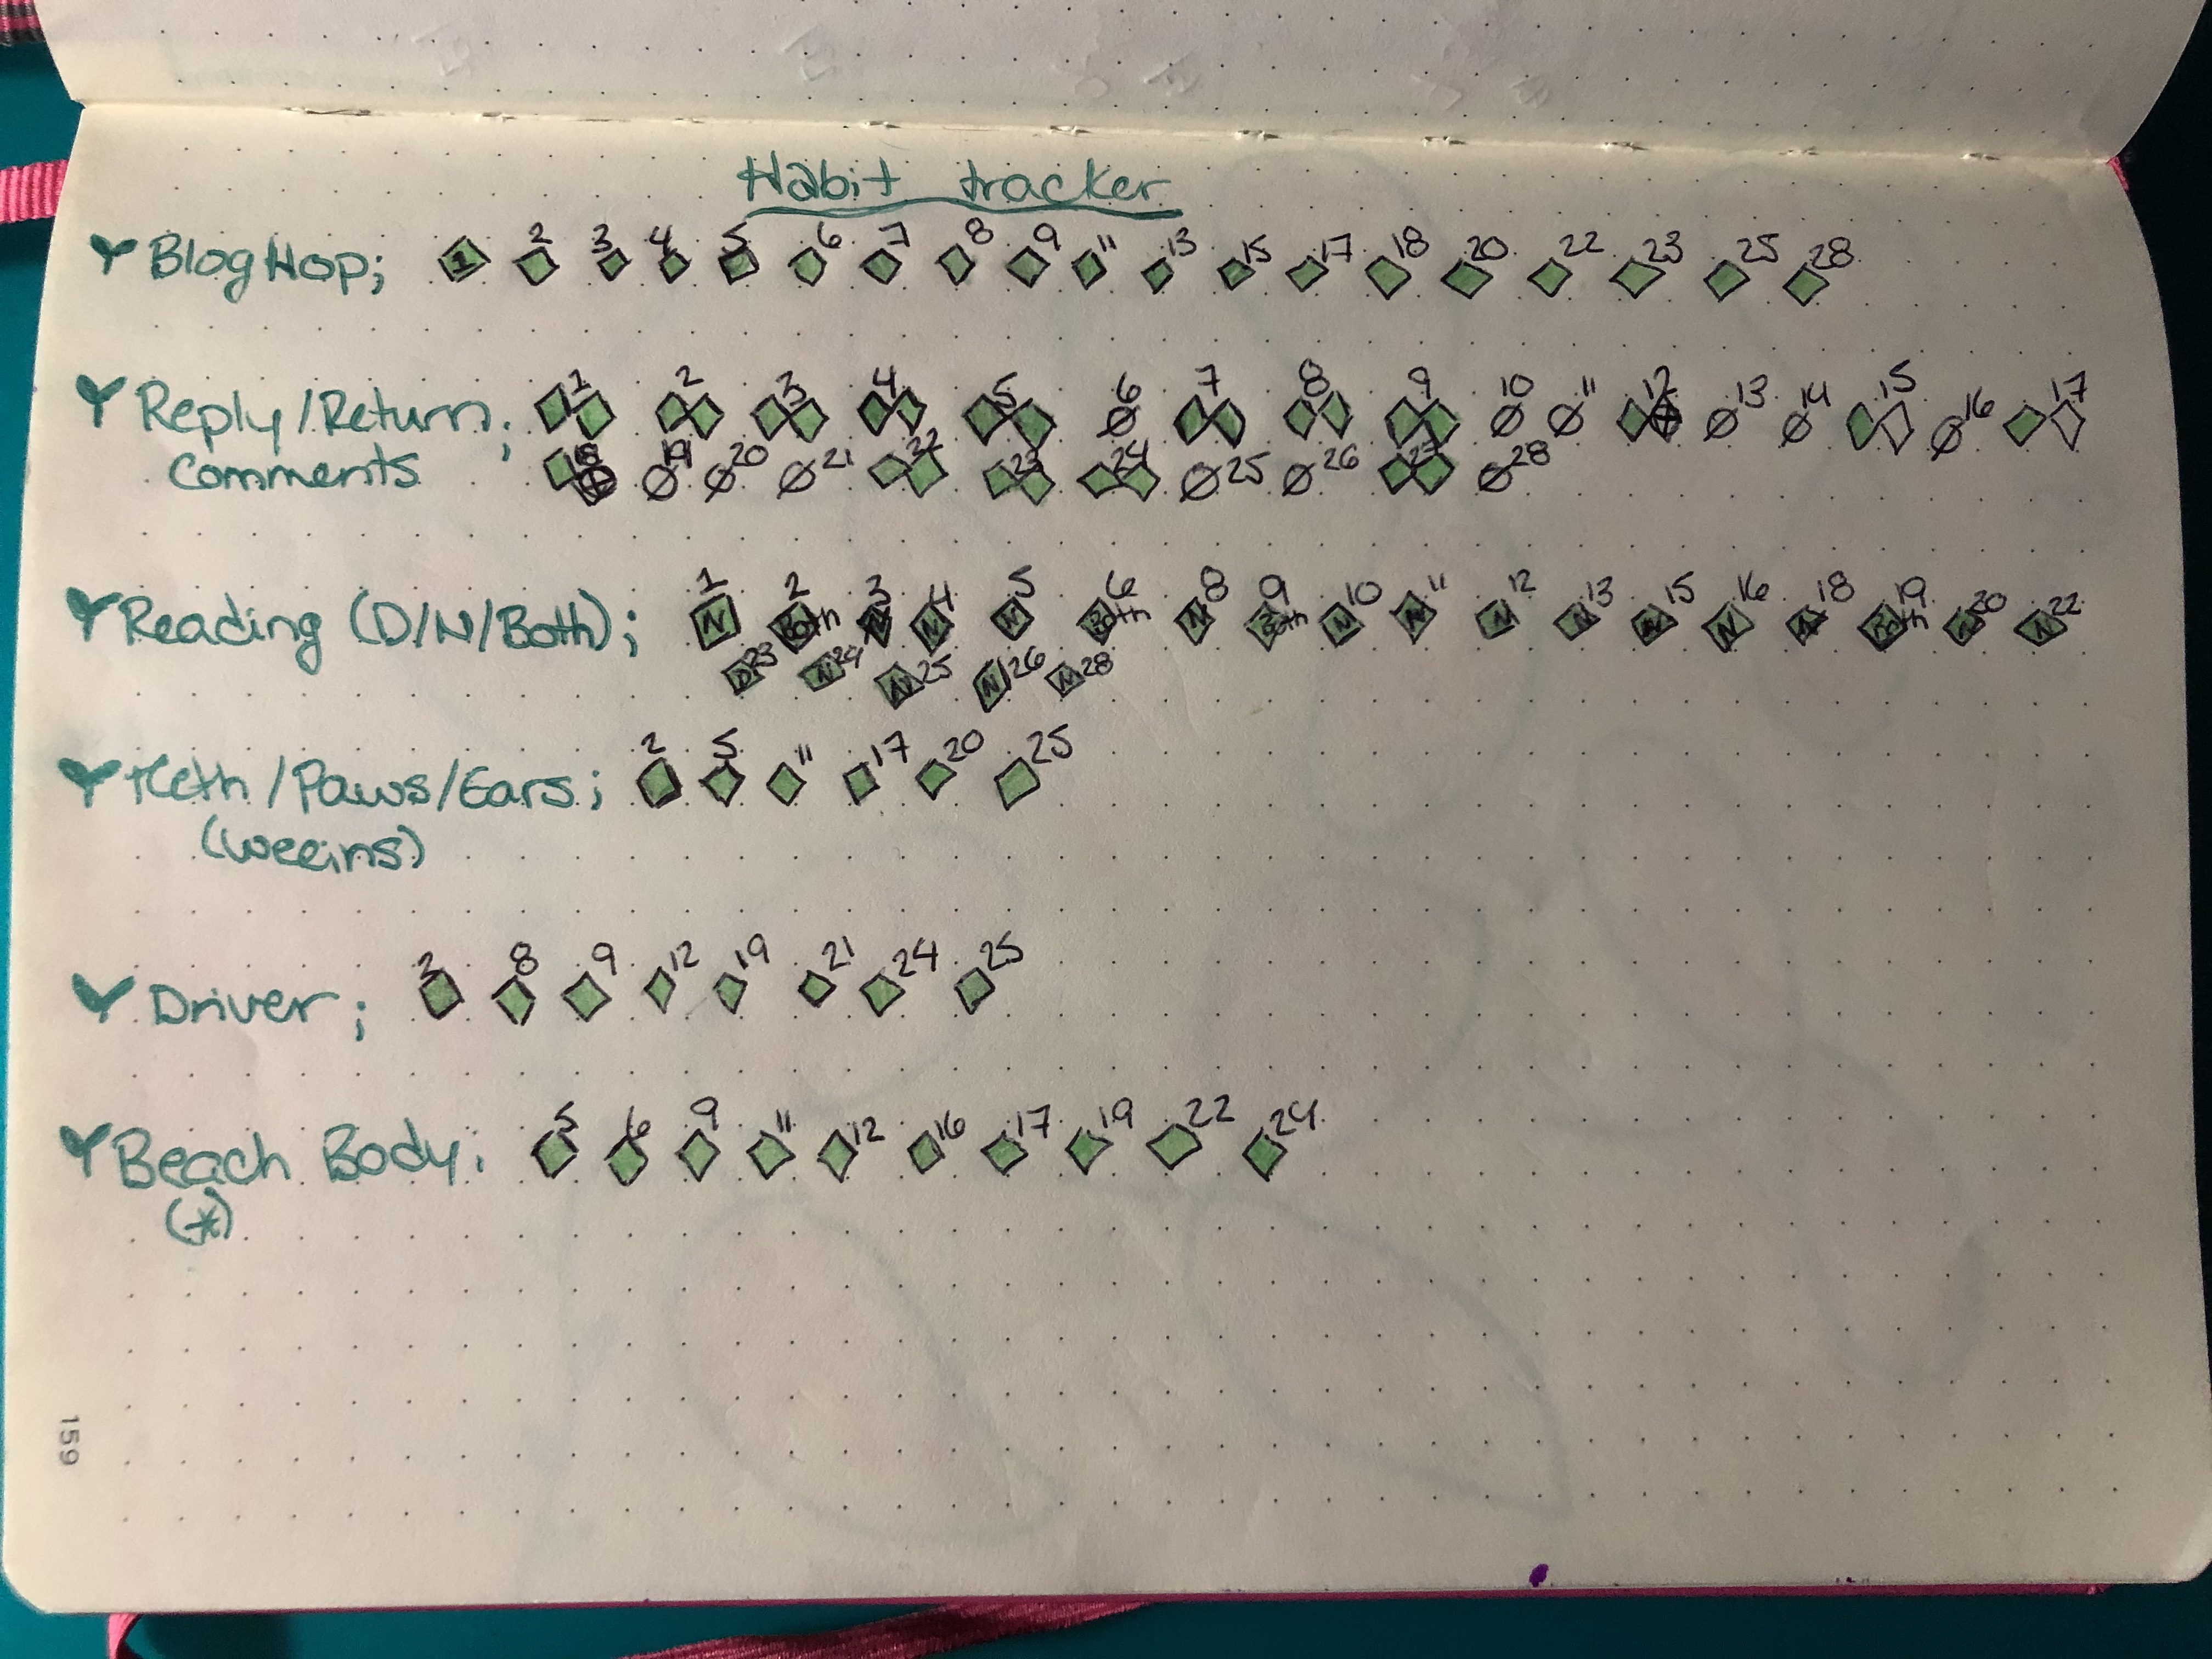 Habit tracker
Blog Hop; 1 2 3 4 5 6 7 8 9 11 13 15 17 18 20 22 23 25 28
Reply/Return; 1 2 3 4 5 6 Ø 7 8 9 10 Ø Ø 11 12 Ø 13 Ø 14 15 Ø 16 17
Comments 18 Ø 19 Ø 20 Ø 21 22 23 24 Ø 25 Ø 26 27 Ø 28
Reading (D/N/Both); 1 N 2 Both 3 N 4 N 5 N 6 Both 8 N 9 Both 10 N 11 N 12 N 13 N 15 N 16 N 18 N 19 Both 20 N 22 N
D 23 N 24 N 25 N 26 N 28
Teeth/Paws/Ears; 2 5 11 17 20 25
(weeins)
Driver; 2 8 9 12 19 21 24 25
Beach Body; 5 6 9 11 12 16 17 19 22 24
(*)
159